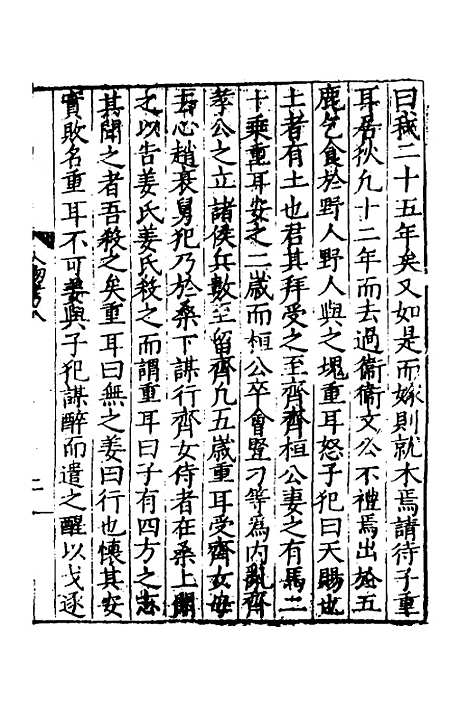 曰我二十五年矣又如是而嫁則就木焉請待子重
耳居狄九十二年而去過衞衞文公不禮焉出於五
鹿乞食於野人野人與之塊重耳怒子犯曰天賜也
土者有土也君其拜受之至齊齊桓公妻之有馬二
十乘重耳安之二歲而桓公卒會豎刁等為内亂齊
孝公之立諸侯兵數至留齊九五歲重耳受齊女毋
去心趙衰舅犯乃於桑下謀行齊女侍者在桑上聞
之以告姜氏姜氏殺之而謂重耳曰子有四方之志
其聞之者吾殺之矣重耳曰無之姜曰行也懷其安
實敗名重耳不可姜與子犯謀醉而遣之醒以戈逐